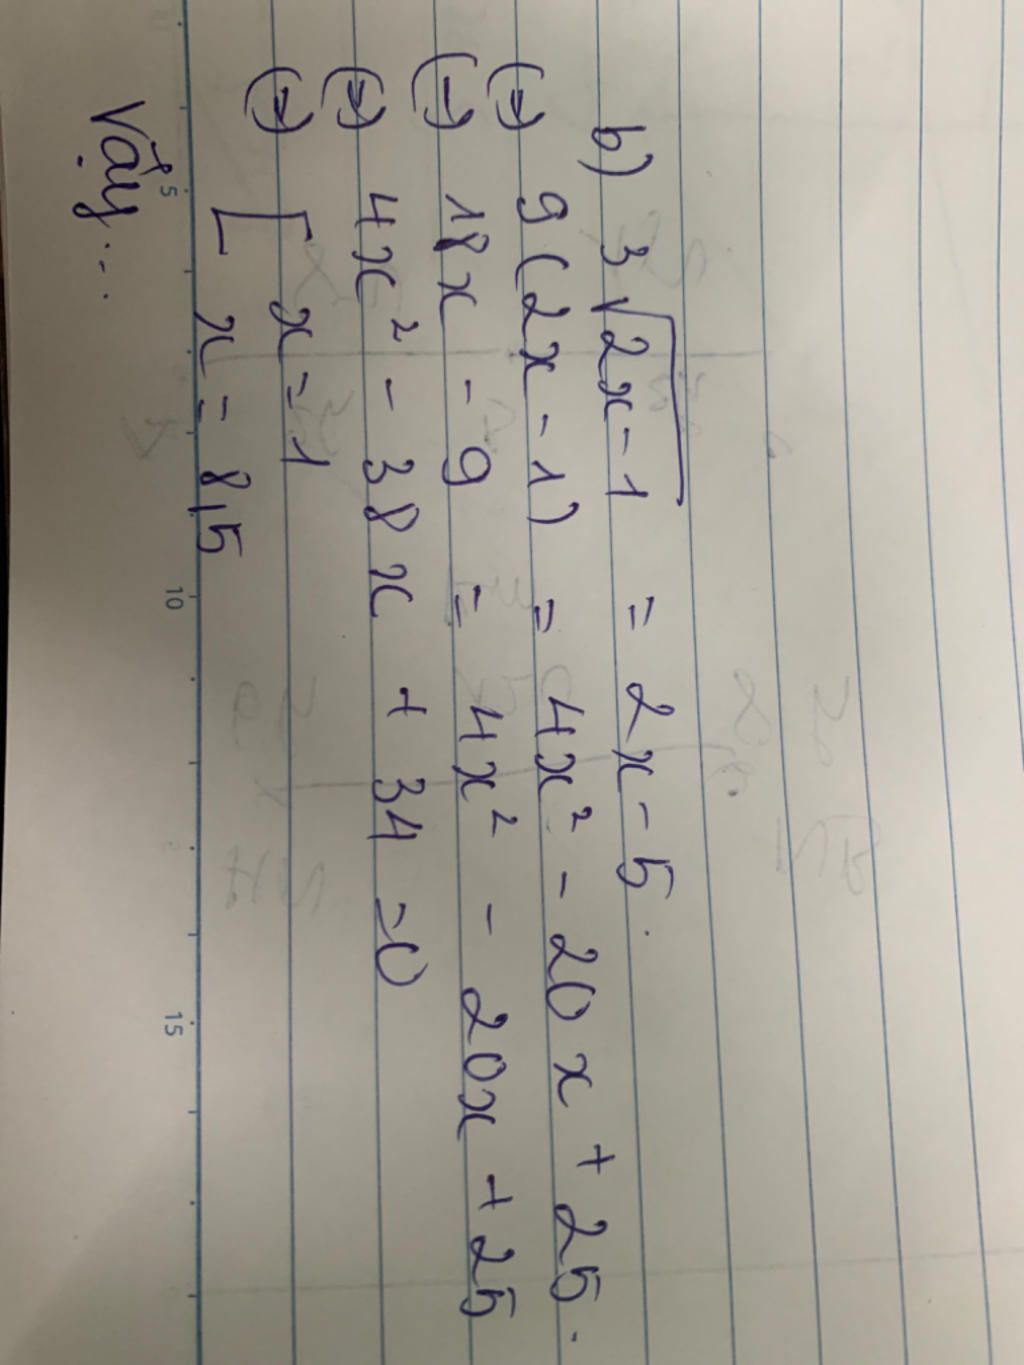 b) 3√(2x-1) = 2x - 5.
(→) 9(2x - 1) = 4x² - 20x + 25.
(→) 18x - 9 = 4x² - 20x + 25
(→) 4x² - 38x + 34 = 0
(→) [ x = 1
x = 8,5
Vậy...
5 10 15